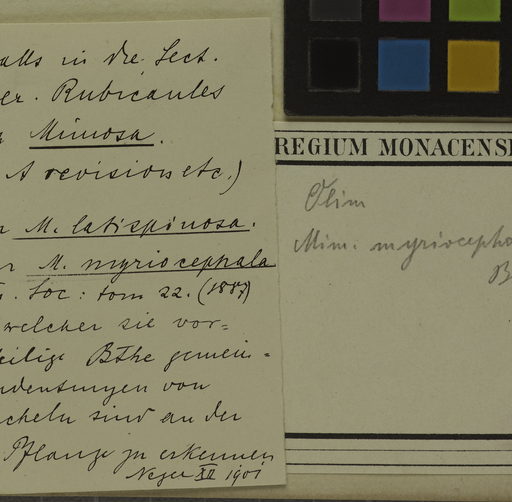 alls in die Sect.
er. Rubicaules
Mimosa.
A revision etc.)
M. latispinosa.
M. myriocephala
Soc: tom 22. (1887)
welcher sie vor=
eilige Bthe gemein=
ndeutungen von
cheln sind an der
Pflanze zu erkennen
Neger XII 1901
REGIUM MONACENS
Olim
Mim. myriocepha
B